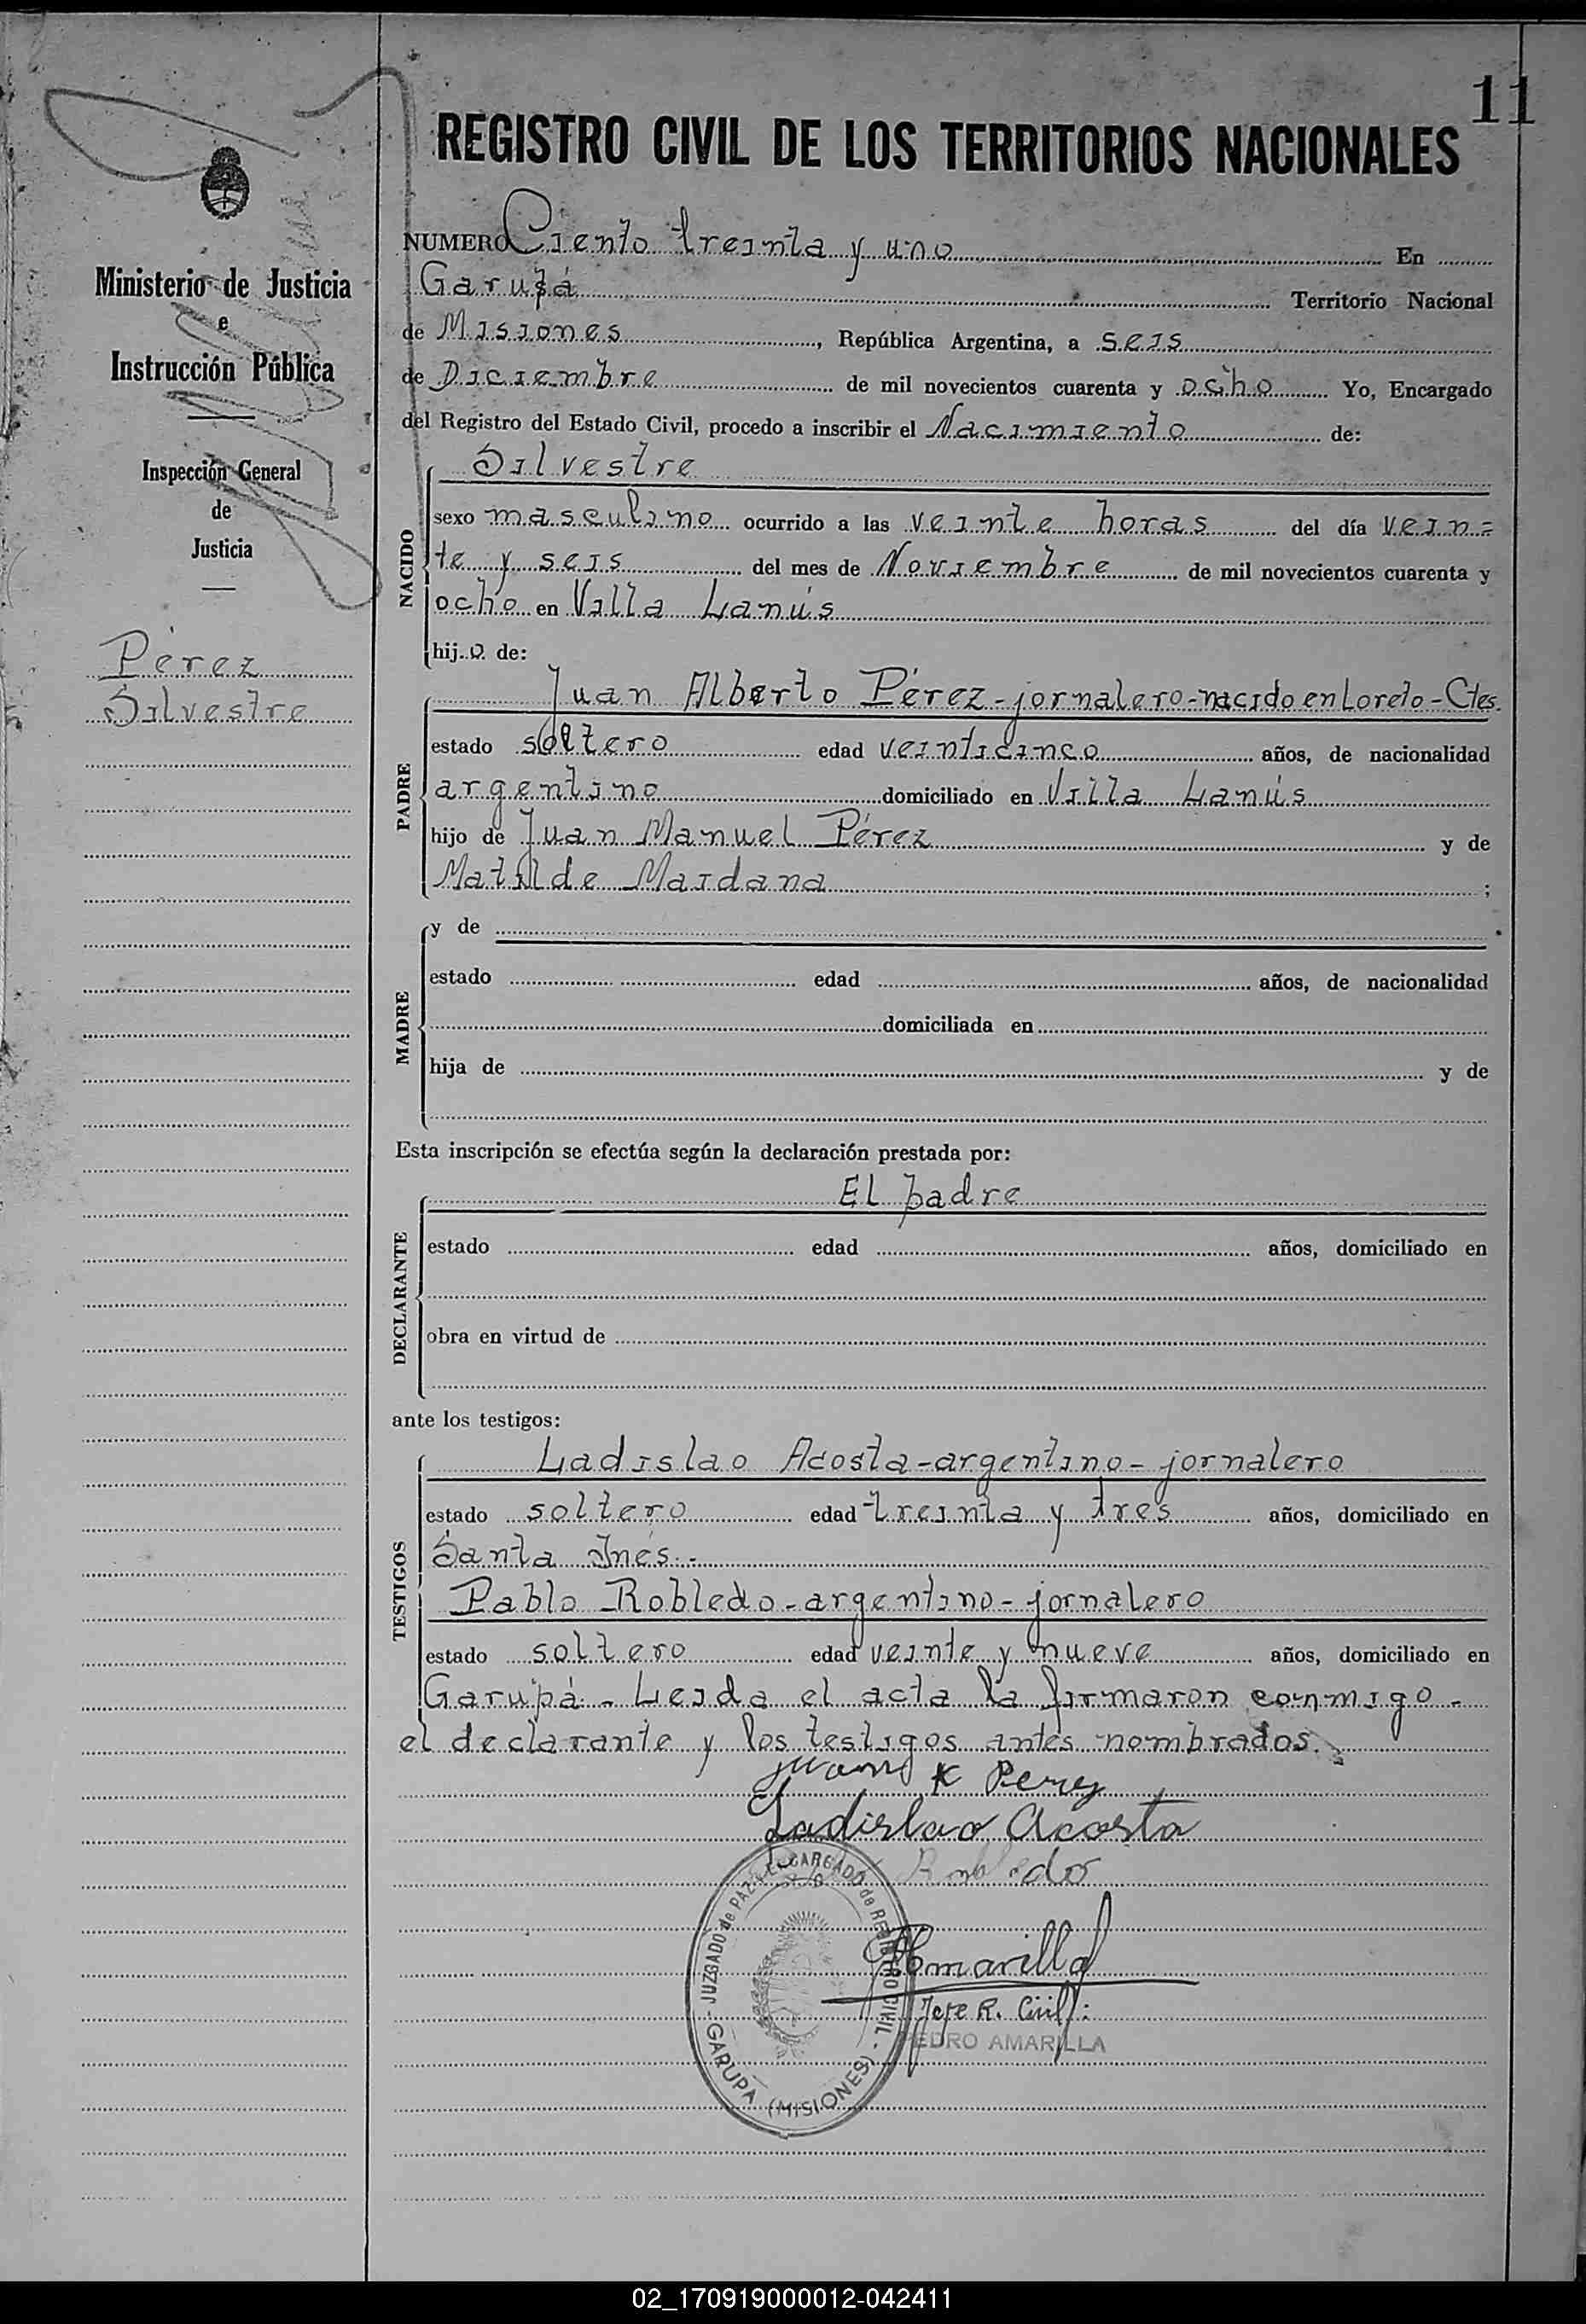 11
REGISTRO CIVIL DE LOS TERRITORIOS NACIONALES
Ministerio de Justicia
e
Instrucción Pública
Inspección General
de
Justicia
Pérez
Silvestre
NUMERO Ciento treinta y uno En
Garupá Territorio Nacional
de Misiones, República Argentina, a seis
de Diciembre de mil novecientos cuarenta y ocho Yo, Encargado
del Registro del Estado Civil, procedo a inscribir el Nacimiento de:
NACIDO
Silvestre
sexo masculino ocurrido a las veinte horas del día vein=
te y seis del mes de Noviembre de mil novecientos cuarenta y
ocho en Villa Lanús
hij o de:
PADRE
Juan Alberto Pérez - jornalero - nacido en Loreto - Ctes.
estado soltero edad veinticinco años, de nacionalidad
argentino domiciliado en Villa Lanús
hijo de Juan Manuel Pérez y de
Matilde Maidana ;
MADRE
y de
estado edad años, de nacionalidad
domiciliada en
hija de y de
Esta inscripción se efectúa según la declaración prestada por:
DECLARANTE
El padre
estado edad años, domiciliado en
obra en virtud de
ante los testigos:
TESTIGOS
Ladislao Acosta - argentino - jornalero
estado soltero edad treinta y tres años, domiciliado en
Santa Inés.-
Pablo Robledo - argentino - jornalero
estado soltero edad veinte y nueve años, domiciliado en
Garupá - Leida el acta la firmaron conmigo -
el declarante y los testigos antes nombrados.
Juan Perez
Ladislao Acosta
Robledo
JUZGADO de PAZ y ENCARGADO de REGISTRO CIVIL - GARUPA (MISIONES)
PAmarilla
Jefe R. Civil:
PEDRO AMARILLA
02_170919000012-042411